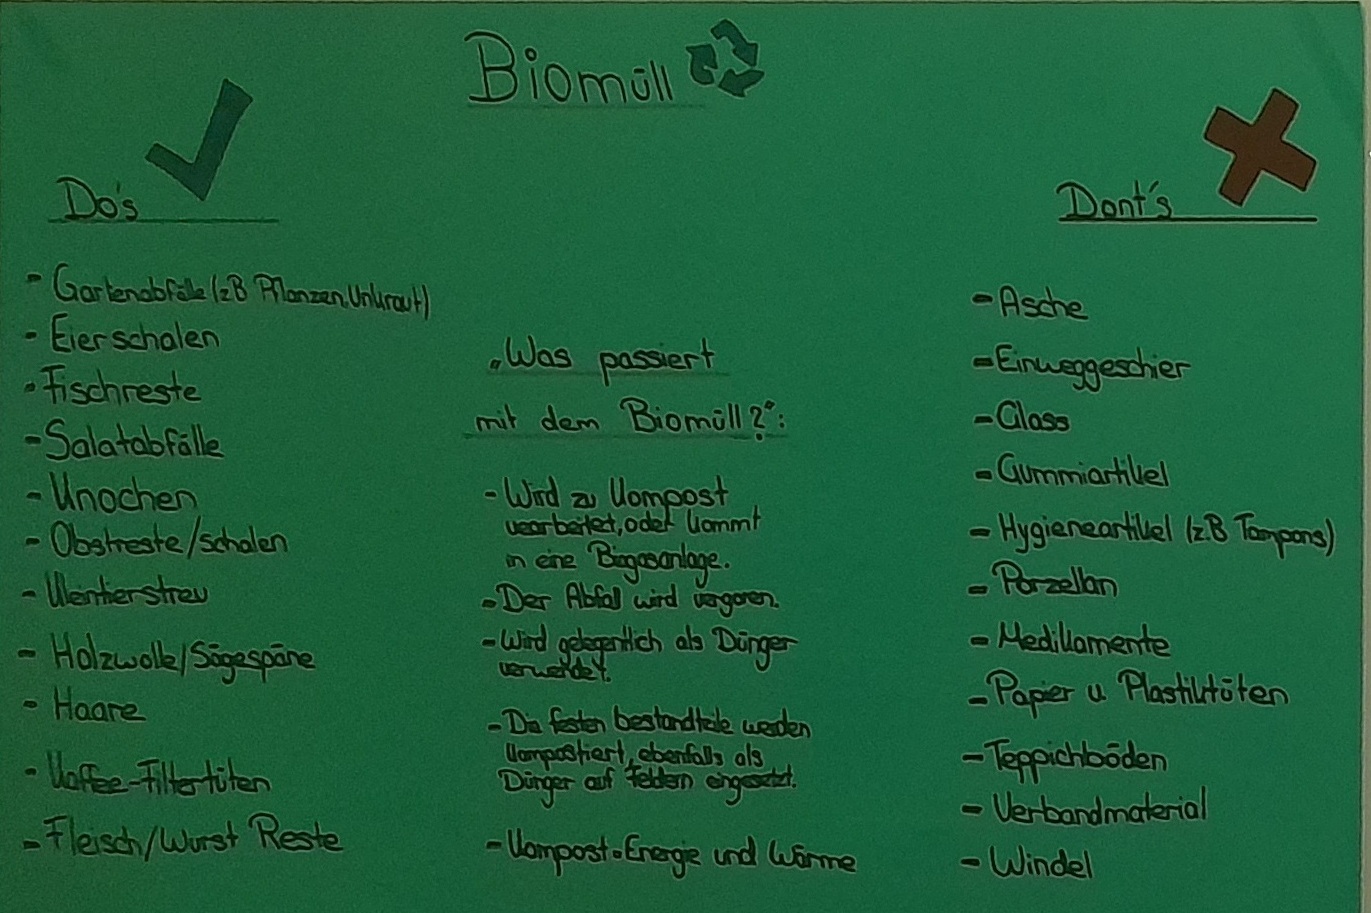 Biomüll
Do's
- Gartenabfälle (z.B Pflanzen, Unkraut)
- Eierschalen
- Fischreste
- Salatabfälle
- Knochen
- Obstreste/schalen
- Kleintierstreu
- Holzwolle/Sägespäne
- Haare
- Kaffee-Filtertüten
- Fleisch/Wurst Reste
„Was passiert
mit dem Biomüll?“:
- Wird zu Kompost
vearbeitet, oder kommt
in eine Biogasanlage.
- Der Abfall wird vergoren.
- Wird gelegentlich als Dünger
verwendet.
- Die festen bestandteile werden
kompostiert, ebenfalls als
Dünger auf Feldern eingesetzt.
- Kompost=Energie und Wärme
Dont's
- Asche
- Einweggeschier
- Glass
- Gummiartikel
- Hygieneartikel (z.B Tampons)
- Porzellan
- Medikamente
- Papier u Plastiktüten
- Teppichböden
- Verbandmaterial
- Windel